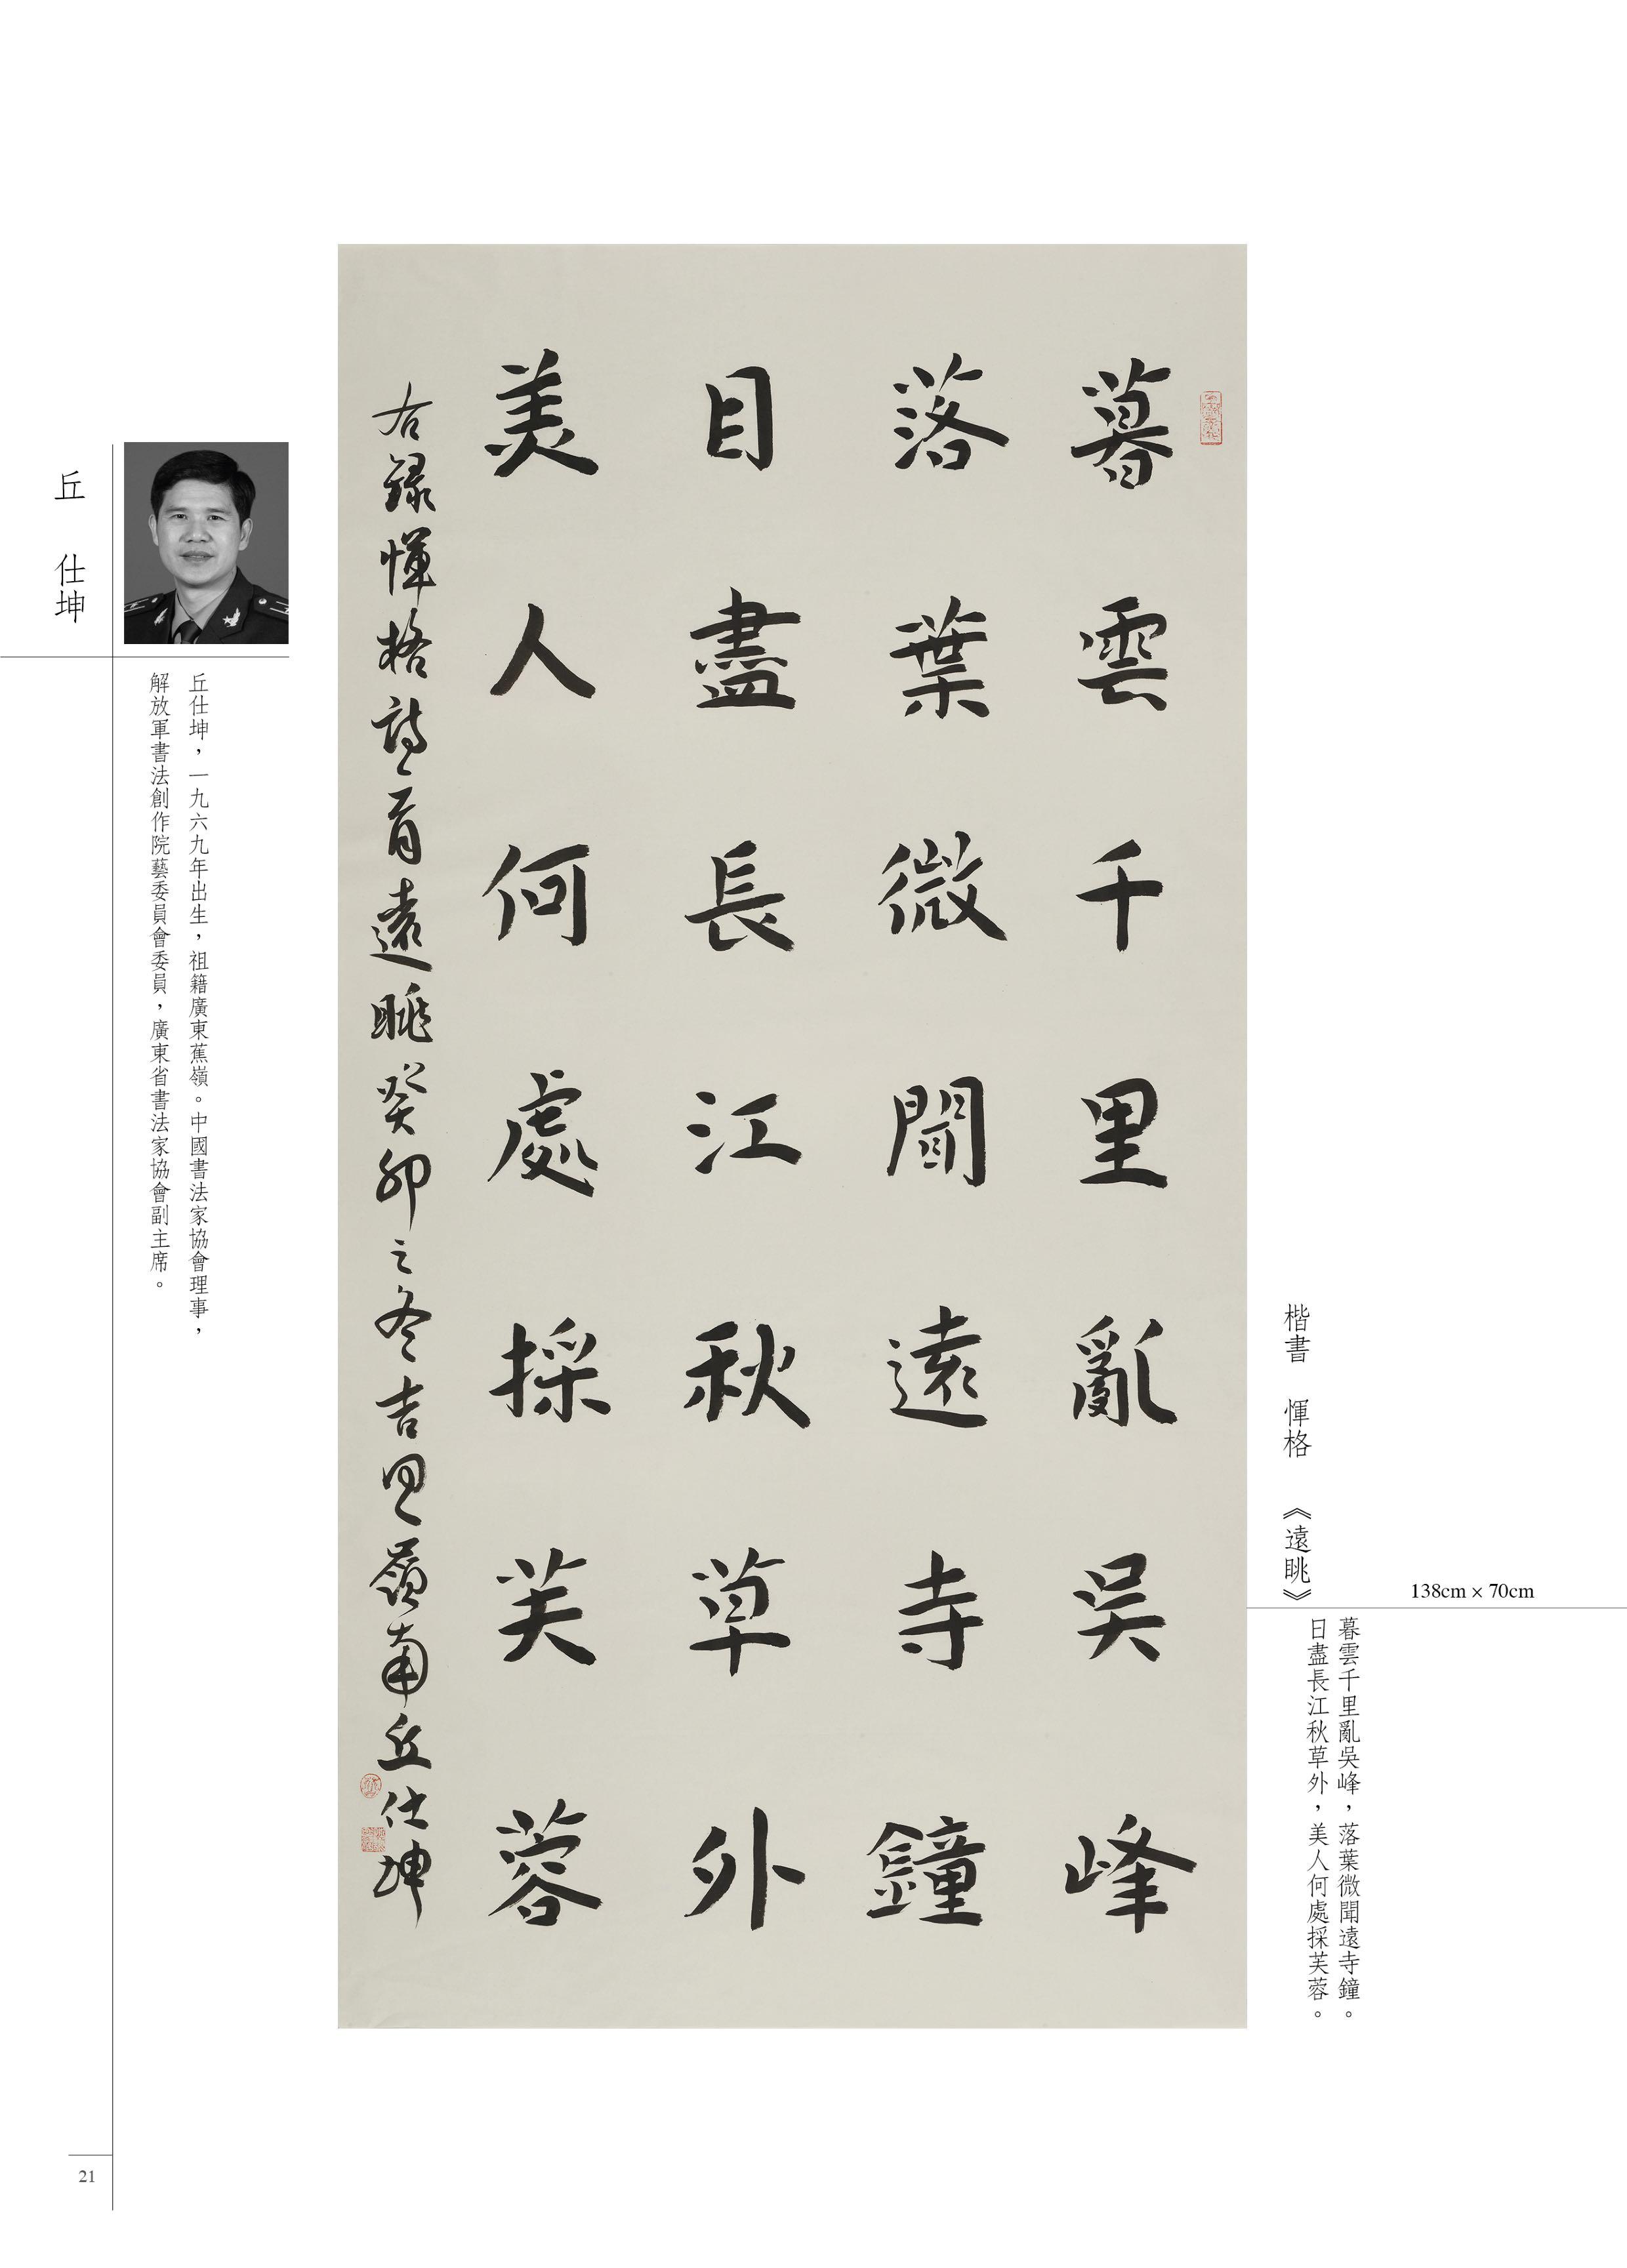 138cm × 70cm
暮雲千里亂吳峰，落葉微聞遠寺鐘。
日盡長江秋草外，美人何處採芙蓉。
楷書 惲格 《遠眺》
暮雲千里亂吳峰
落葉微聞遠寺鐘
目盡長江秋草外
美人何處採芙蓉
右錄惲格詩一首遠眺癸卯之冬吉日嶺南丘仕坤
丘仕坤
丘仕坤，一九六九年出生，祖籍廣東蕉嶺。中國書法家協會理事，
解放軍書法創作院藝委員會委員，廣東省書法家協會副主席。
21